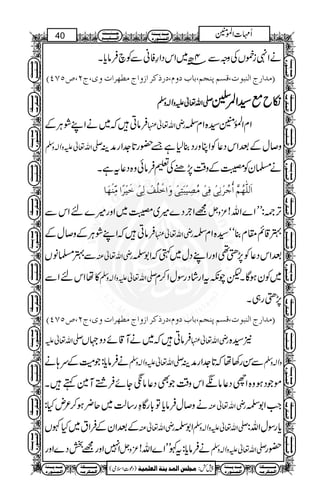 40
اُمہات المؤمنین
نے انہی زخموں کی وجہ سے ۴ھ میں اس دار فانی سے کوچ فرمایا۔
(مدارج النبوت،قسم پنجم،باب دوم،درذکر ازواج مطهرات وی،ج۲،ص۴۷۵)
نکاح مع سید المرسلین صلی اللہ تعالیٰ علیہ واٰلہ وسلم
ام المؤمنین سیدہ ام سلمہ رضی اللہ تعالیٰ عنہا فرماتی ہیں کہ میں نے اپنے شوہر کے
وصال کے بعد اس دعا کو اپنا ورد بنالیا جسے حضور تاجدار مدینہ صلی اللہ تعالیٰ علیہ واٰلہ وسلم
نے مسلمان کو مصیبت کے وقت پڑھنے کی تعلیم فرمائی وہ دعا یہ ہے۔
اَللّٰهُمَّ اْجُرْنِیْ فِیْ مُصِیْبَتِیْ وَاخْلُفْ لِیْ خَیْرًا مِّنْهَا
ترجمہ: ’’اے اللہ! عزوجل مجھے اجر دے میری مصیبت میں اور میرے لئے اس سے
بہتر قائم مقام بنا‘‘ سیدہ ام سلمہ رضی اللہ تعالیٰ عنہا فرماتی ہیں کہ اپنے شوہر کے وصال کے
بعد اس دعا کو پڑھتی تھی اور اپنے دل میں کہتی کہ ابو سلمہ رضی اللہ تعالیٰ عنہ سے بہتر مسلمانوں
میں کون ہوگا۔ لیکن چونکہ یہ ارشاد رسول اکرم صلی اللہ تعالیٰ علیہ واٰلہ وسلم کا تھا اس لئے اسے
پڑھتی رہی۔
(مدارج النبوت،قسم پنجم،باب دوم،درذکر ازواج مطهرات وی،ج۲،ص۴۷۵)
نیز سیدہ رضی اللہ تعالیٰ عنہا فرماتی ہیں کہ میں نے آقائے دو جہاں صلی اللہ تعالیٰ علیہ
واٰلہ وسلم سے سن رکھا تھا کہ تاجدار مدینہ صلی اللہ تعالیٰ علیہ واٰلہ وسلم نے فرمایا: جو میت کے سرہانے
موجود ہو وہ اچھی دعا مانگے اس وقت جو بھی دعا مانگی جائے فرشتے آمین کہتے ہیں۔
جب ابو سلمہ رضی اللہ تعالیٰ عنہ نے وصال فرمایا تو بارگاہ رسالت میں حاضر ہوکر عرض کیا:
یا رسول اللہ! صلی اللہ تعالیٰ علیہ واٰلہ وسلم ابو سلمہ رضی اللہ تعالیٰ عنہ کے بعد ان کے فراق میں کیا کہوں
حضور صلی اللہ تعالیٰ علیہ واٰلہ وسلم نے فرمایا: یہ کہو: ’’اے اللہ! عزوجل انہیں اور مجھے بخش دے اور
پیش کش: مجلس المدینۃ العلمیۃ (دعوت اسلامی)